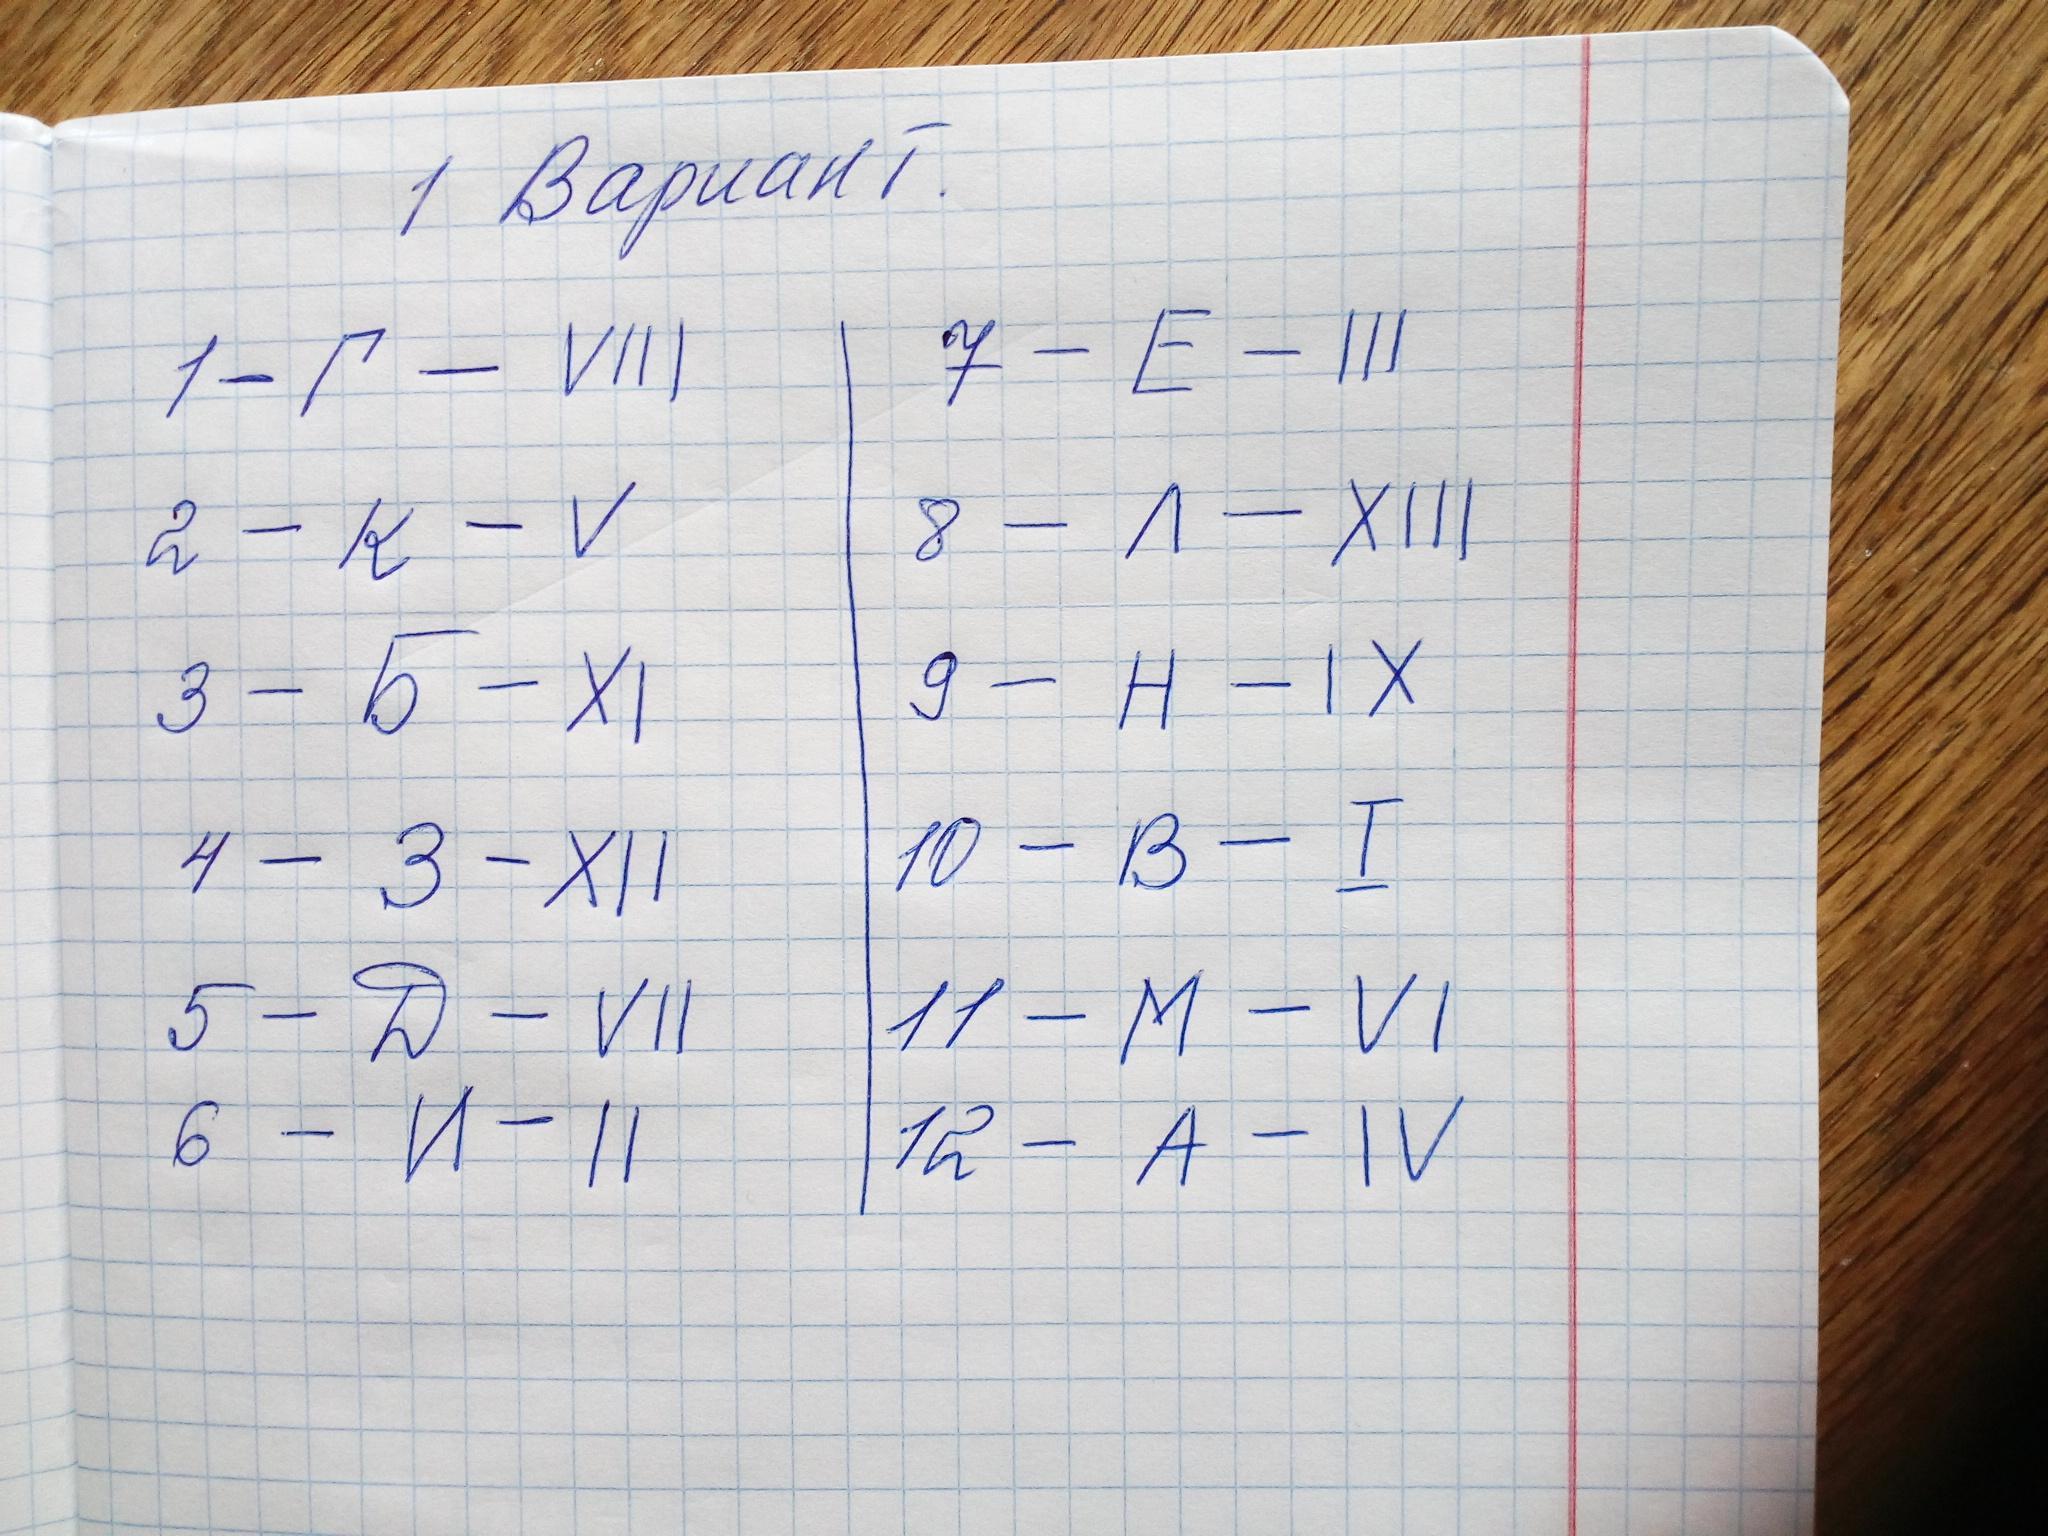 1 Вариант.
1 - Г - VIII
2 - К - V
3 - Б - XI
4 - З - XII
5 - Д - VII
6 - И - II
7 - Е - III
8 - Л - XIII
9 - Н - IX
10 - В - I
11 - М - VI
12 - А - IV